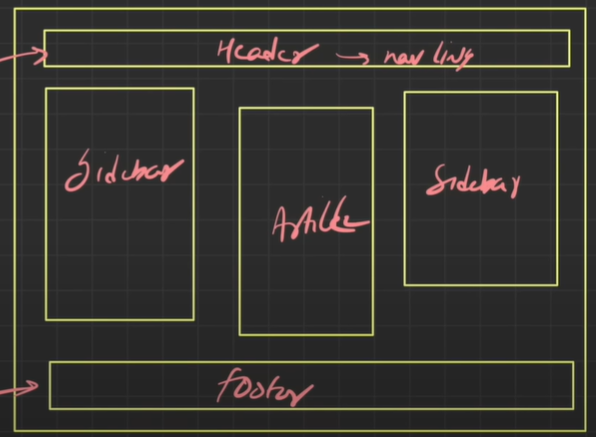 Header → nav links
Sidebar
Article
Sidebar
footer